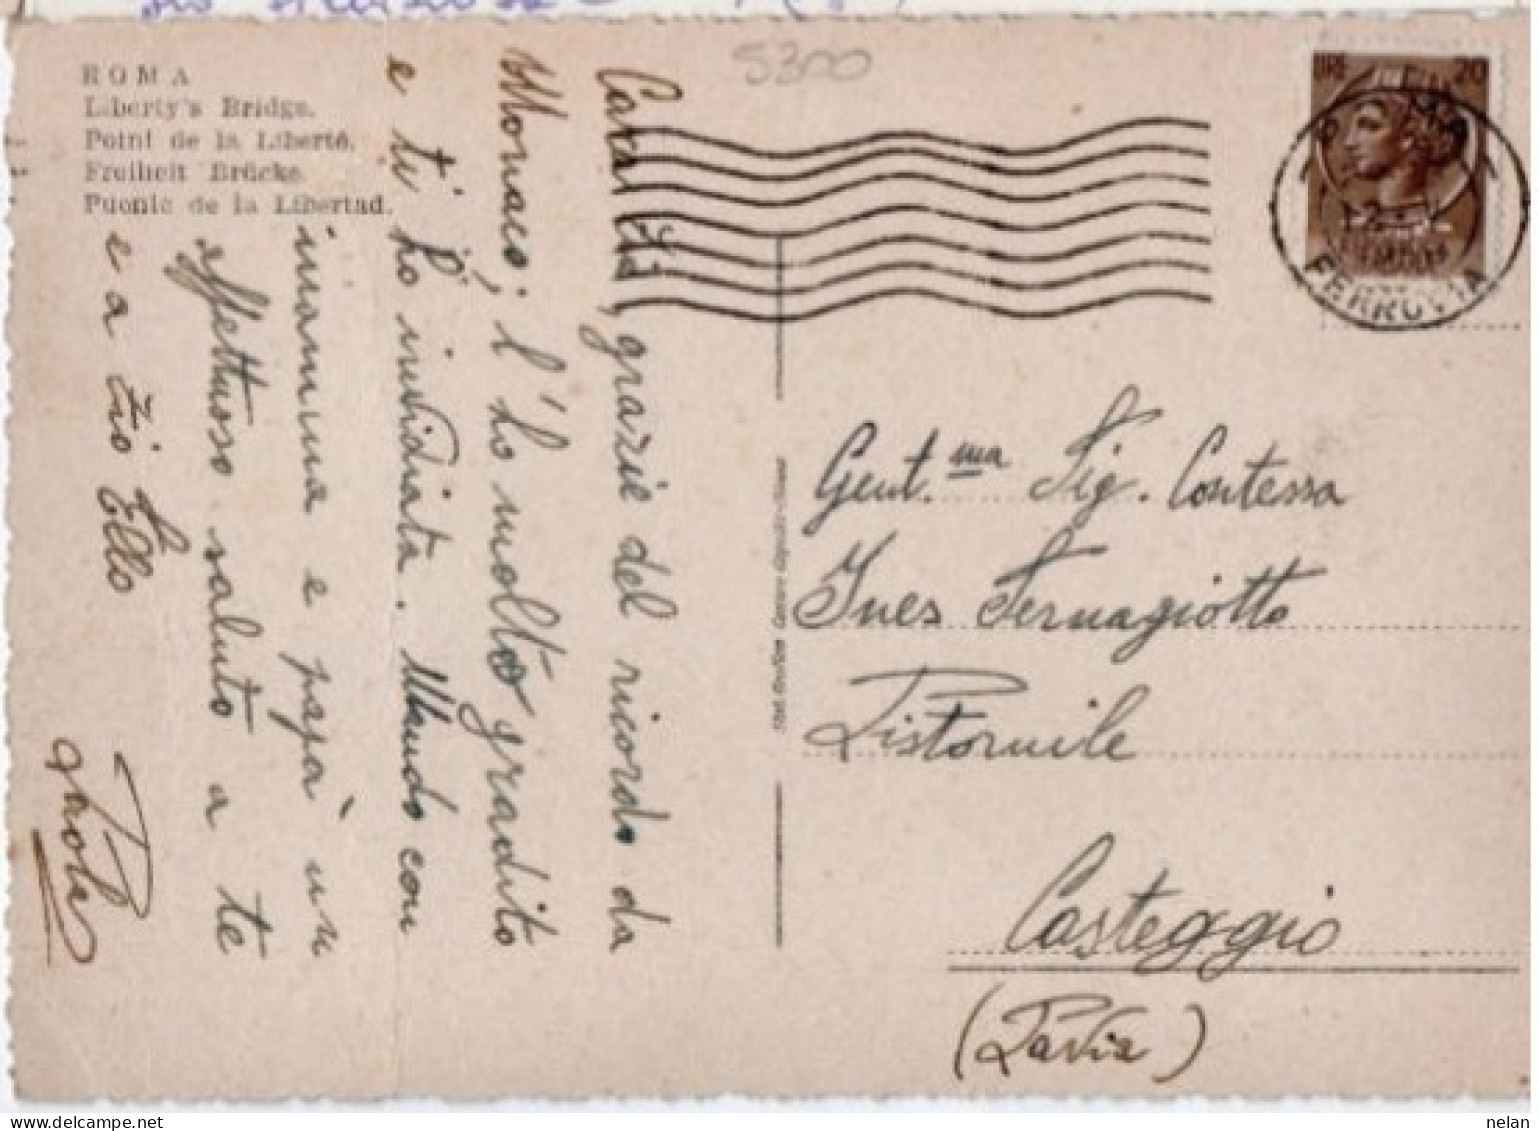 ROMA
Liberty's Bridge.
Point de la Liberté.
Freiheit Brücke
Puonic de la Libertad.
5300
LIRE 20
FERROVIA
Cara Zia, grazie del ricordo da
Monaco; l'ho molto gradito
e ti ho invidiata. Mando con
mamma e papà un
affettuoso saluto a te
e a zio Lello
Paola
Gent.ma Sig. Contessa
Ines Fernagiotto
Pistornile
Casteggio
(Pavia)
nelan